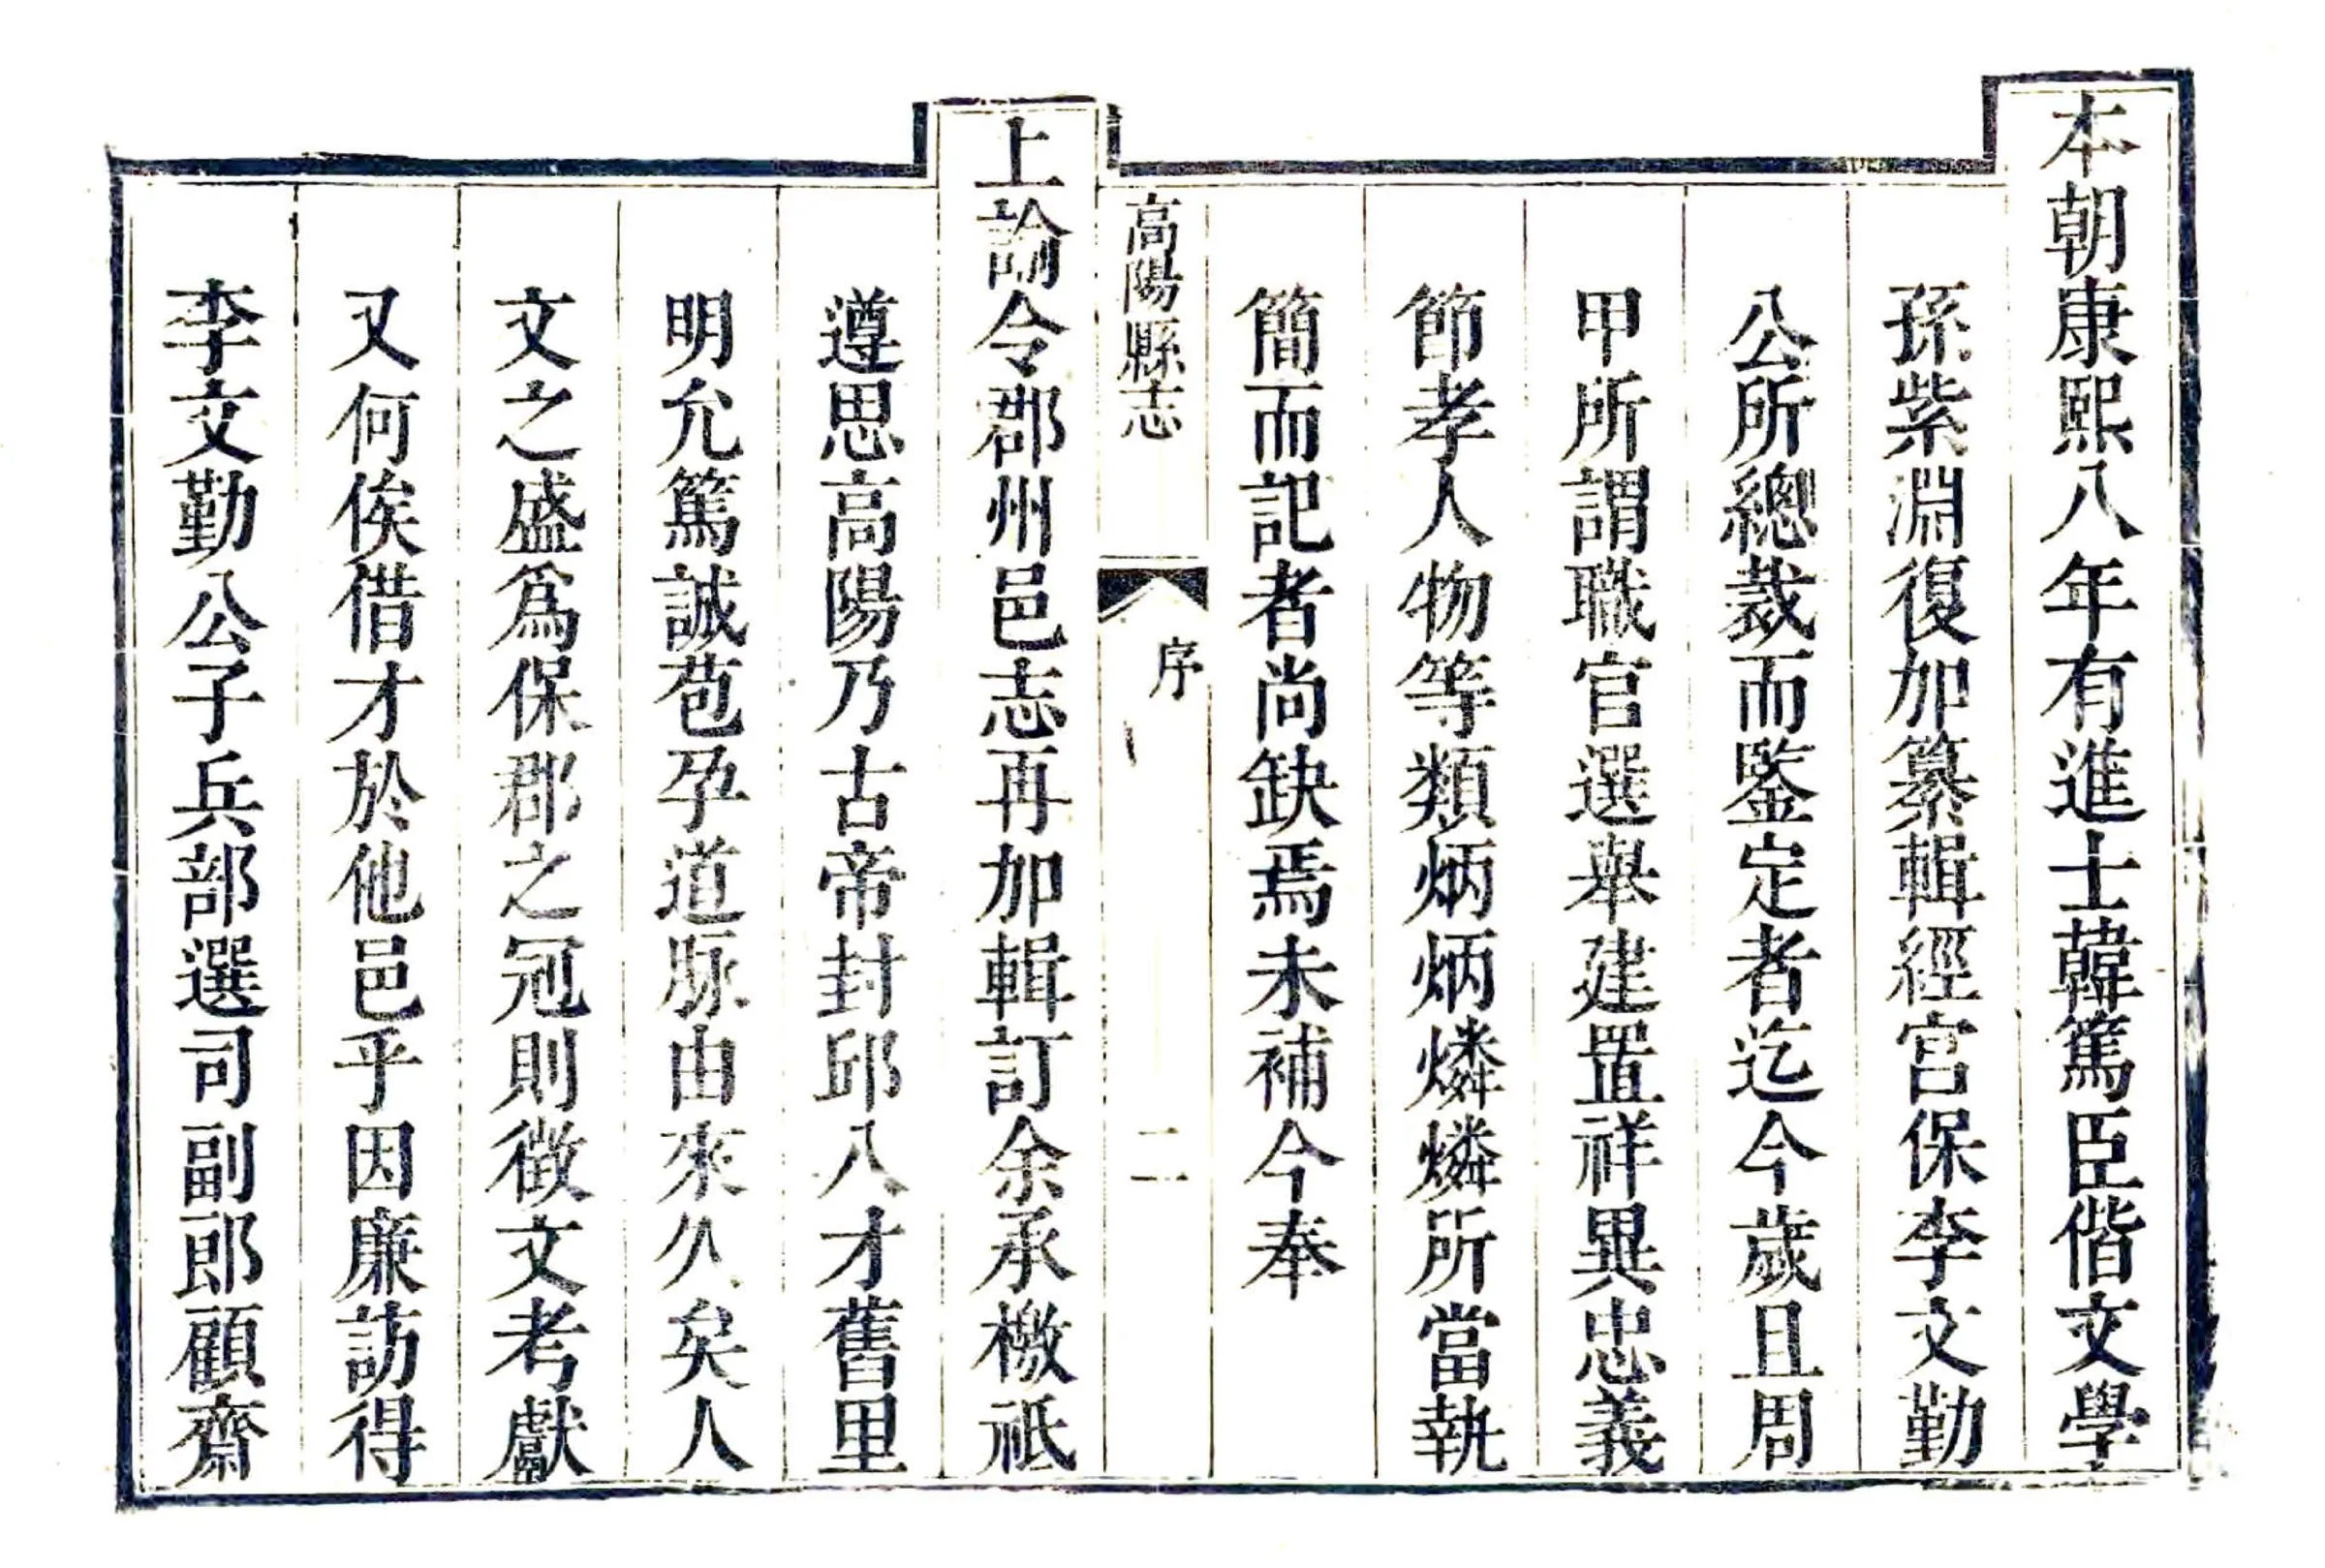 本朝康熙八年有進士韓篤臣偕文學
孫紫淵復加纂輯經宮保李文勤
公所總裁而鑒定者迄今歲且周
甲所謂職官選舉建置祥異忠義
節孝人物等類炳炳燐燐所當執
簡而記者尚缺焉未補今奉
高陽縣志
序
二
上諭令郡州邑志再加輯訂余承檄祇
遵思高陽乃古帝封邱八才舊里
明允篤誠苞孕道脉由來久矣人
文之盛爲保郡之冠則徵文考獻
又何俟借才於他邑乎因廉訪得
李文勤公子兵部選司副郎顧齋